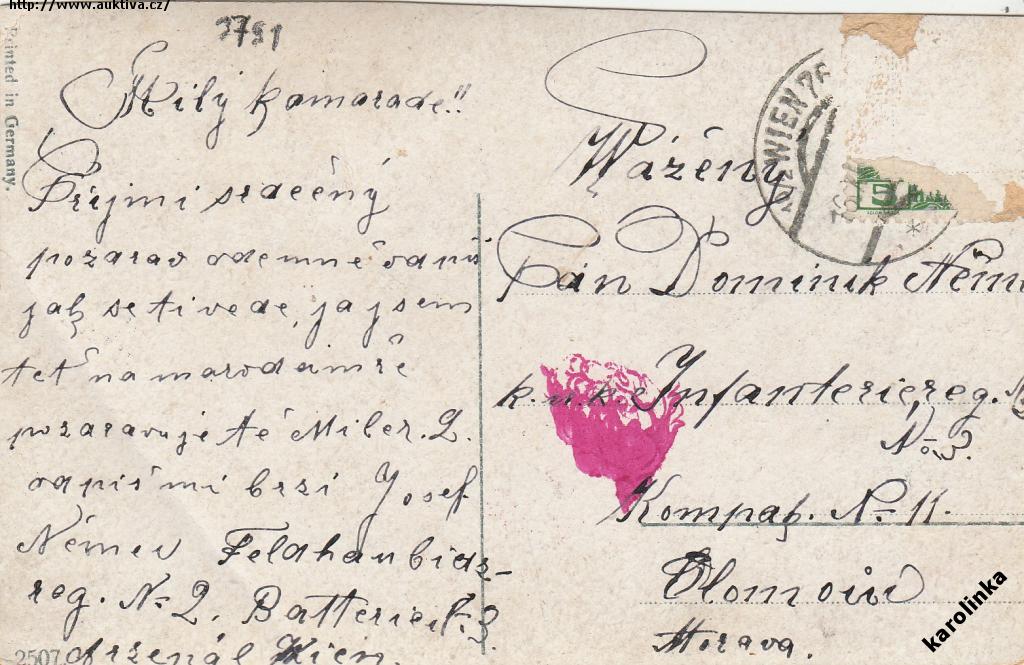 http://www.auktiva.cz/
3791
Printed in Germany.
Milý kamarade!!
Příjmi srdečný
pozdrav odemně odpiš
jak se ti vede, ja jsem
teť na marodcimře
pozdravuje tě Miler. L.
odpiš mi brzi Josef
Němec Feldhaubidz-
reg. No 2. Batterie No. 3
Arzenál Wien.
2507
WIEN 76
5
Wážený
Pán Dominik Něm
k.u.k. Infanteriereg.
No 3.
Kompak. No 11.
Olomouc
Morava.
karolinka